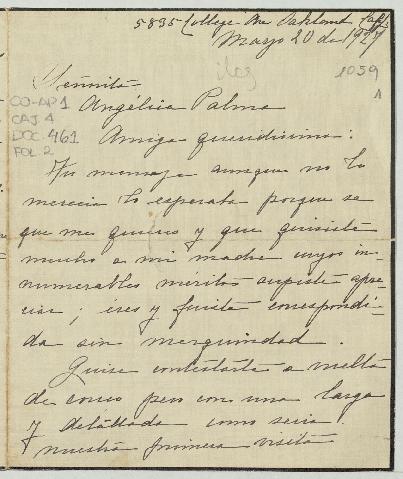 5835 College Ave Oakland Calif.
Mayo 20 de 1927
1059
1
Señorita
CO-AP1
Angélica Palma
CAJ 4
DOC 461
FOL 2
Amiga queridisima:
Tu mensaje aunque no lo
merecia lo esperaba porque se
que me quieres y que quisiste
mucho a mi madre cuyos in-
numerables méritos supiste apre-
ciar; eres y fuiste correspondi-
da sin mezquindad.
Quise contestarte a vuelta
de correo pero con una larga
y detallada como seria
nuestra primera visita